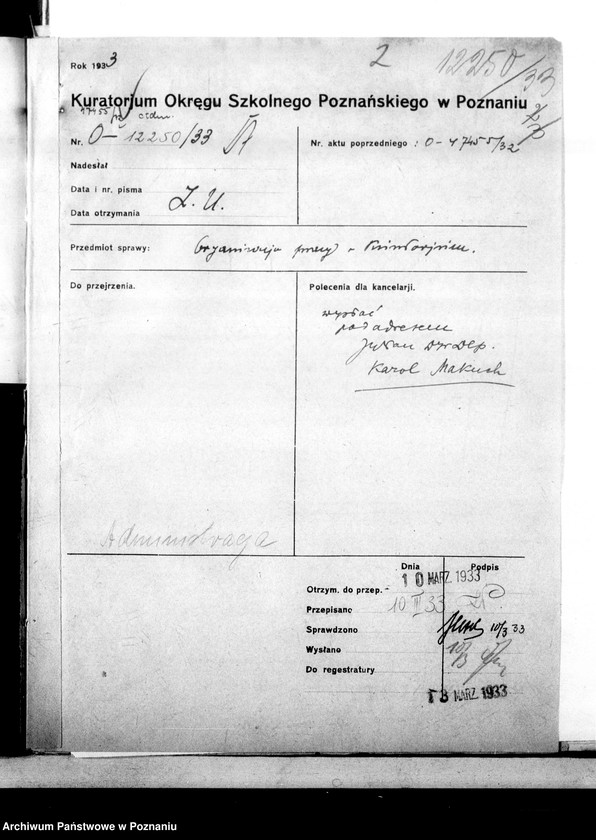 Rok 1933
2
12250/33
Kuratorjum Okręgu Szkolnego Poznańskiego w Poznaniu
Nr. O- 12250/33
Nr. aktu poprzedniego : O-47455/32
Nadesłał
Data i nr. pisma
Data otrzymania
Z. U.
Przedmiot sprawy: Organizacja pracy w Kuratorjum.
Do przejrzenia.
Polecenia dla kancelarji.
wysłać
pod adresem
Julian
Karol Makuch
Administracja
Dnia
Podpis
Otrzym. do przep.
10 MARZ. 1933
Przepisano
10 III 33
Sprawdzono
10/3 33
Wysłano
10/3
Do regestratury
13 MARZ. 1933
Archiwum Państwowe w Poznaniu